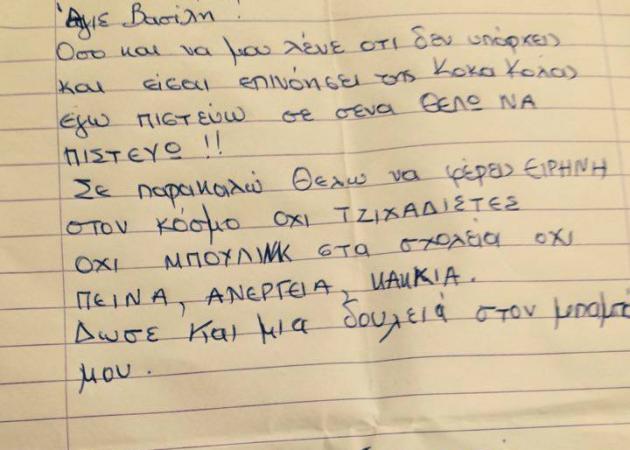 Άγιε Βασίλη!
Όσο και να μου λένε οτι δεν υπάρχεις
και είσαι επινόησει της Κοκα Κολας
εγω ΠΙΣΤΕΥΩ σε σενα ΘΕΛΩ ΝΑ
ΠΙΣΤΕΥΩ !!
Σε παρακαλώ Θελω να φέρεις ΕΙΡΗΝΗ
ΣΤΟΝ ΚΟΣΜΟ ΟΧΙ ΤΖΙΧΑΔΙΣΤΕΣ
ΟΧΙ ΜΠΟΥΛΙΝΚ ΣΤΑ σχολεία οχι
ΠΕΙΝΑ, ΑΝΕΡΓΕΙΑ, ΚΑΚΚΙΑ.
Δωσε και μια δουλειά στον μπαμπά
μου.